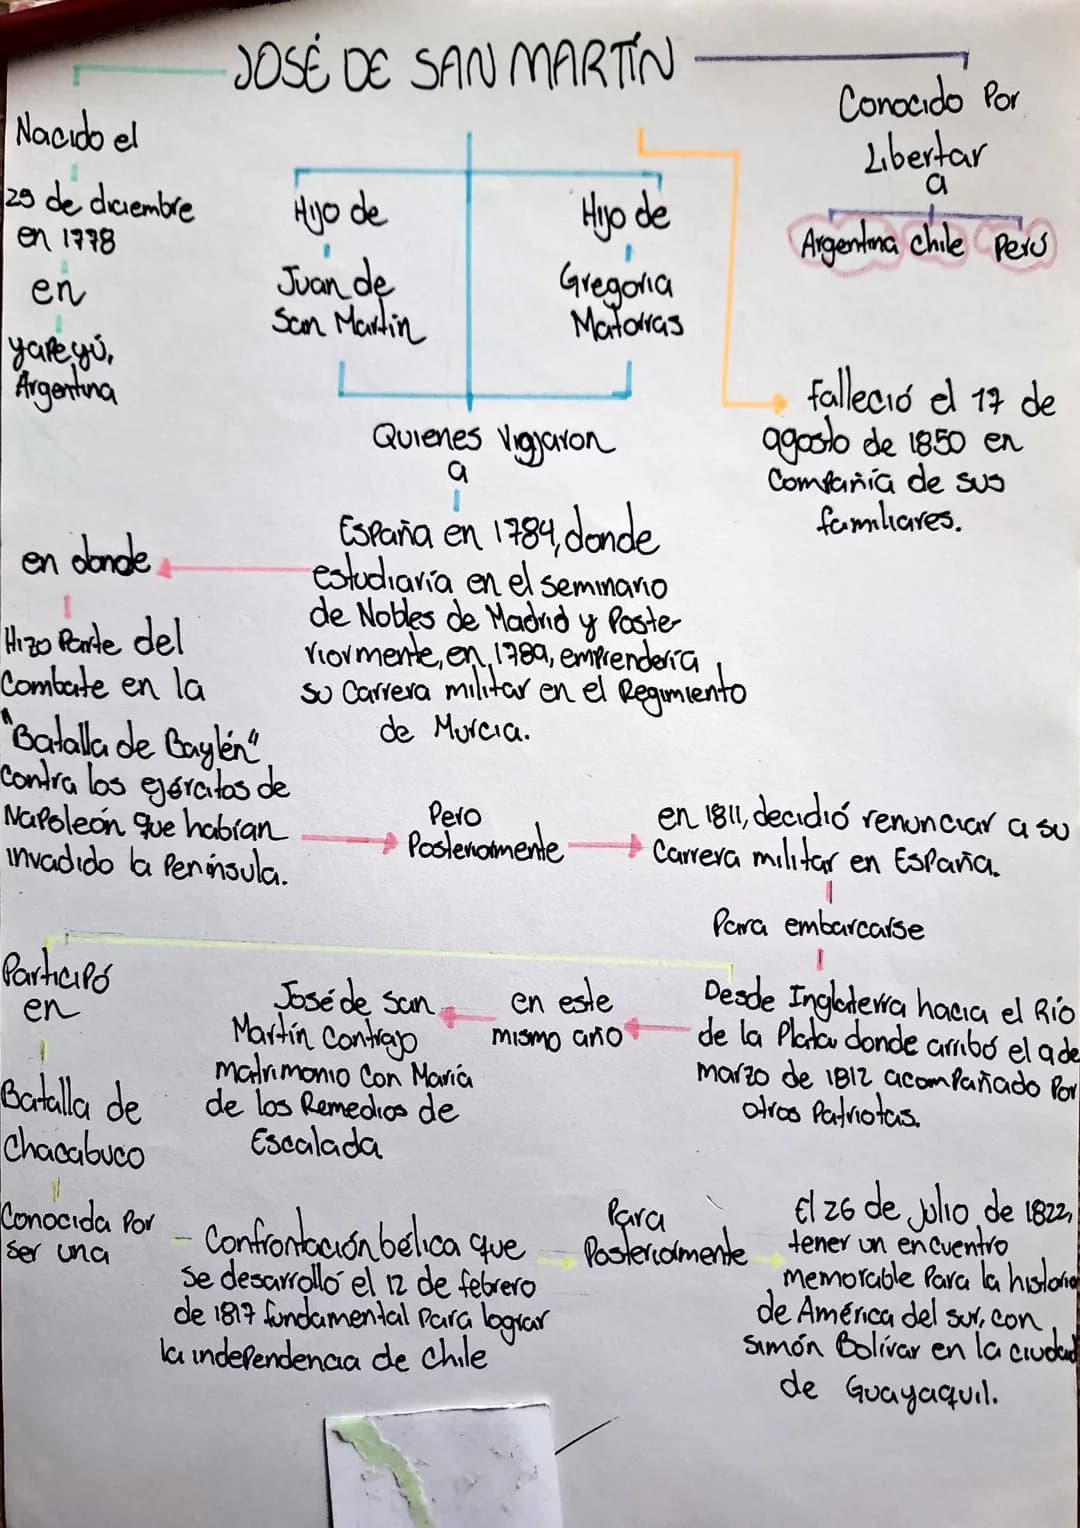 JOSÉ DE SAN MARTÍN
Nacido el
29 de diciembre
en 1778
en
yapeyú,
Argentina
Hijo de
Juan de
San Martín
Hijo de
Gregoria
Matorras
Conocido Por
Libertar
a
Argentina Chile Perú
Falleció el 17 de
agosto de 1850 en
Compañía de sus
familiares.
Quienes Viajaron
a
España en 1784, donde
estudiaría en el seminario
de Nobles de Madrid y Poste-
riormente, en 1789, emprendería
su Carrera militar en el Regimiento
de Murcia.
en donde
Hizo Parte del
Combate en la
"Batalla de Baylén"
Contra los ejércitos de
Napoleón que habían
invadido la Península.
Pero
Posteriormente
en 1811, decidió renunciar a su
Carrera militar en España.
Para embarcarse
Desde Inglaterra hacia el Río
de la Plata donde arribó el 9 de
marzo de 1812 acompañado Por
otros Patriotas.
en este
mismo año
José de San
Martín Contrajo
matrimonio Con María
de los Remedios de
Escalada
Participó
en
Batalla de
Chacabuco
Conocida Por
ser una
Confrontación bélica que
se desarrolló el 12 de febrero
de 1817 fundamental para lograr
la independencia de Chile
Para
Posteriormente
El 26 de Julio de 1822,
tener un encuentro
memorable Para la historia
de América del sur, con
Simón Bolívar en la ciudad
de Guayaquil.